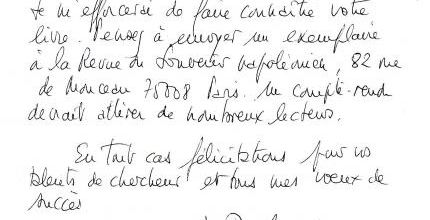 Je m'efforcerai de faire connaître votre
livre. Pensez à envoyer un exemplaire
à la Revue du Souvenir napoléonien, 82 rue
de Monceau 75008 Paris. Un compte-rendu
devrait attirer de nombreux lecteurs.
En tout cas félicitations pour vos
talents de chercheur et tous mes vœux de
succès